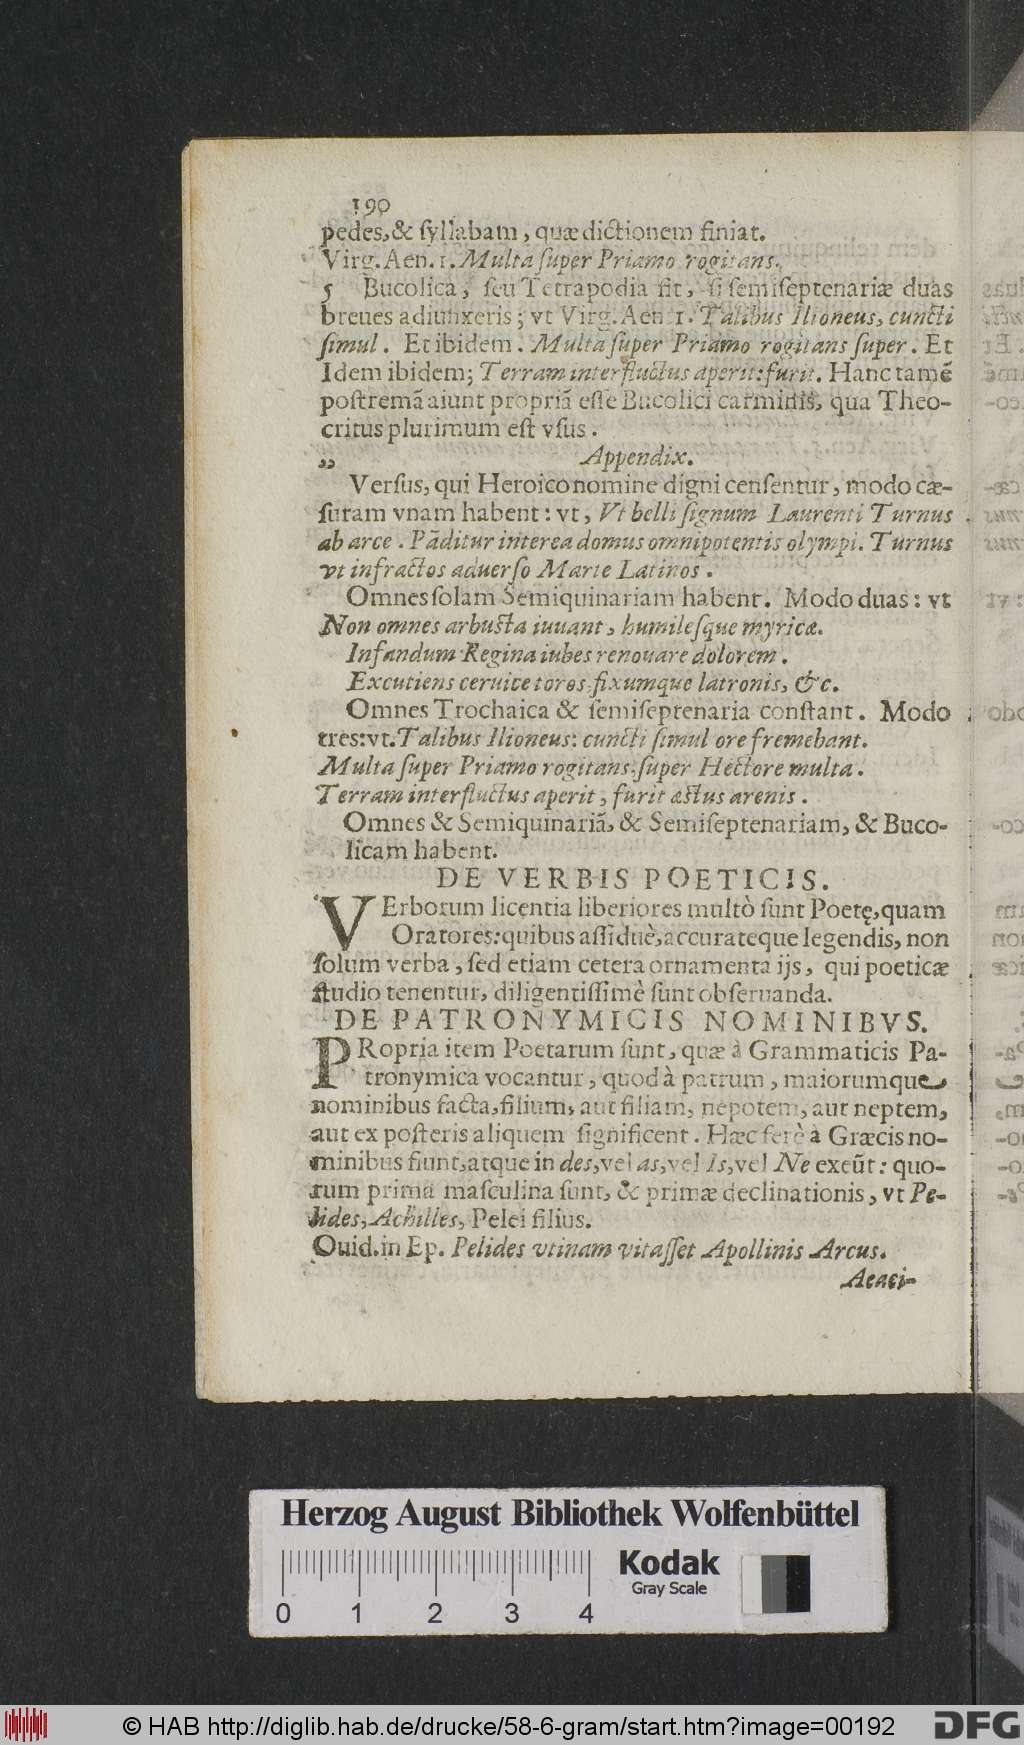 190
pedes, & ſyllabam, quæ dictionem finiat.
Virg. Aen. 1. Multa ſuper Priamo rogitans.
5 Bucolica, ſeu Tetrapodia fit, ſi ſemiſeptenariæ duas
breues adiunxeris; vt Virg. Aen. 1. Talibus Ilioneus, cuncti
ſimul. Et ibidem. Multa ſuper Priamo rogitans ſuper. Et
Idem ibidem; Terram inter fluctus aperit: furit. Hanc tamẽ
poſtremã aiunt propriã eſſe Bucolici carminis, qua Theo-
critus plurimum eſt vſus.
„ Appendix.
Verſus, qui Heroico nomine digni cenſentur, modo cæ-
ſuram vnam habent: vt, Vt belli ſignum Laurenti Turnus
ab arce. Pãditur interea domus omnipotentis olympi. Turnus
vt infractos aduerſo Marte Latinos.
Omnes ſolam Semiquinariam habent. Modo duas: vt
Non omnes arbuſta iuuant, humileſque myricæ.
Infandum Regina iubes renouare dolorem.
Excutiens ceruice toros, fixumque latronis, &c.
Omnes Trochaica & ſemiſeptenaria conſtant. Modo
tres: vt. Talibus Ilioneus: cuncti ſimul ore fremebant.
Multa ſuper Priamo rogitans, ſuper Hectore multa.
Terram inter fluctus aperit, furit æſtus arenis.
Omnes & Semiquinariã, & Semiſeptenariam, & Buco-
licam habent.
DE VERBIS POETICIS.
VErborum licentia liberiores multò ſunt Poetę, quam
Oratores: quibus aſſiduè, accurateque legendis, non
ſolum verba, ſed etiam cetera ornamenta ijs, qui poeticæ
ſtudio tenentur, diligentiſſimè ſunt obſeruanda.
DE PATRONYMICIS NOMINIBVS.
PRopria item Poetarum ſunt, quæ à Grammaticis Pa-
tronymica vocantur, quod à patrum, maiorumque
nominibus facta, filium, aut filiam, nepotem, aut neptem,
aut ex poſteris aliquem ſignificent. Hæc ferè à Græcis no-
minibus fiunt, atque in des, vel as, vel Is, vel Ne exeũt: quo-
rum prima maſculina ſunt, & primæ declinationis, vt Pe-
lides, Achilles, Pelei filius.
Ouid. in Ep. Pelides vtinam vitaſſet Apollinis Arcus.
Aeaci-
Herzog August Bibliothek Wolfenbüttel
Kodak
Gray Scale
0 1 2 3 4
© HAB http://diglib.hab.de/drucke/58-6-gram/start.htm?image=00192
DFG